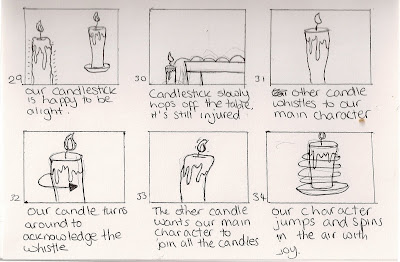 29
our candlestick
is happy to be
alight.
30
Candlestick slowly
hops off the table.
it's still injured
31
other candle
whistles to our
main character
32
Our candle turns
around to
acknowledge the
whistle
33
The other candle
wants our main
character to
join all the candles
34
our character
jumps and spins
in the air with
joy.